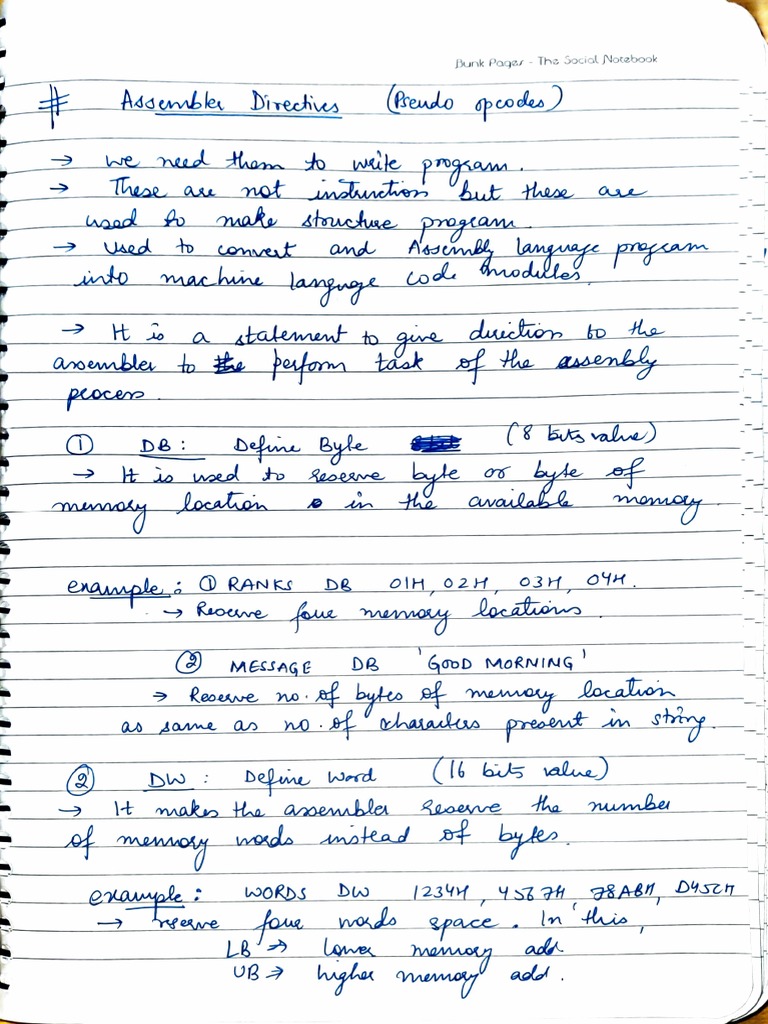 Bunk Pages - The Social Notebook
# Assembler Directives (Pseudo opcodes)
→ We need them to write program.
→ These are not instruction but these are
used to make structure program.
→ Used to convert and Assembly language program
into machine language code modules.
→ It is a statement to give direction to the
assembler to the perform task of the assembly
process.
① DB: Define Byte (8 bits value)
→ It is used to reserve byte or byte of
memory location in the available memory
example: ① RANKS DB 01H, 02H, 03H, 04H.
→ Reserve four memory locations
② MESSAGE DB 'GOOD MORNING'
→ Reserve no. of bytes of memory location
as same as no. of characters present in string.
② DW: Define Word (16 bits value)
→ It makes the assembler reserve the number
of memory words instead of bytes.
example: WORDS DW 1234H, 4567H, 78ABH, D45CH
→ reserve four words space. In this,
LB → lower memory add
UB → higher memory add.